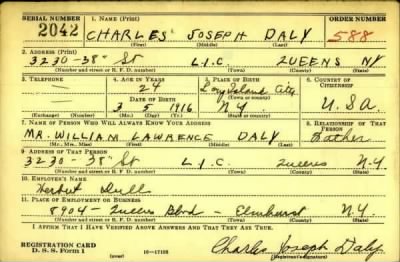 SERIAL NUMBER 1. NAME (Print) ORDER NUMBER
2042 CHARLES JOSEPH DALY 588
(First) (Middle) (Last)
2. ADDRESS (Print)
3230-38th St L.I.C. QUEENS NY
(Number and street or R. F. D. number) (Town) (County) (State)
3. TELEPHONE 4. AGE IN YEARS 5. PLACE OF BIRTH 6. COUNTRY OF CITIZENSHIP
24 Long Island City
DATE OF BIRTH (Town or county)
3 5 1916 N.Y U.S.A
(Exchange) (Number) (Mo.) (Day) (Yr.) (State or country)
7. NAME OF PERSON WHO WILL ALWAYS KNOW YOUR ADDRESS 8. RELATIONSHIP OF THAT PERSON
MR. WILLIAM LAWRENCE DALY Father
(Mr., Mrs., Miss) (First) (Middle) (Last)
9. ADDRESS OF THAT PERSON
3230-38th St L.I.C. Queens N.Y
(Number and street or R. F. D. number) (Town) (County) (State)
10. EMPLOYER'S NAME
Herbert
11. PLACE OF EMPLOYMENT OR BUSINESS
8904- Queens Blvd - Elmhurst N.Y.
(Number and street or R. F. D. number) (Town) (County) (State)
I AFFIRM THAT I HAVE VERIFIED ABOVE ANSWERS AND THAT THEY ARE TRUE.
REGISTRATION CARD
D. S. S. Form 1 (over) 16-17105 Charles Joseph Daly
(Registrant's signature)